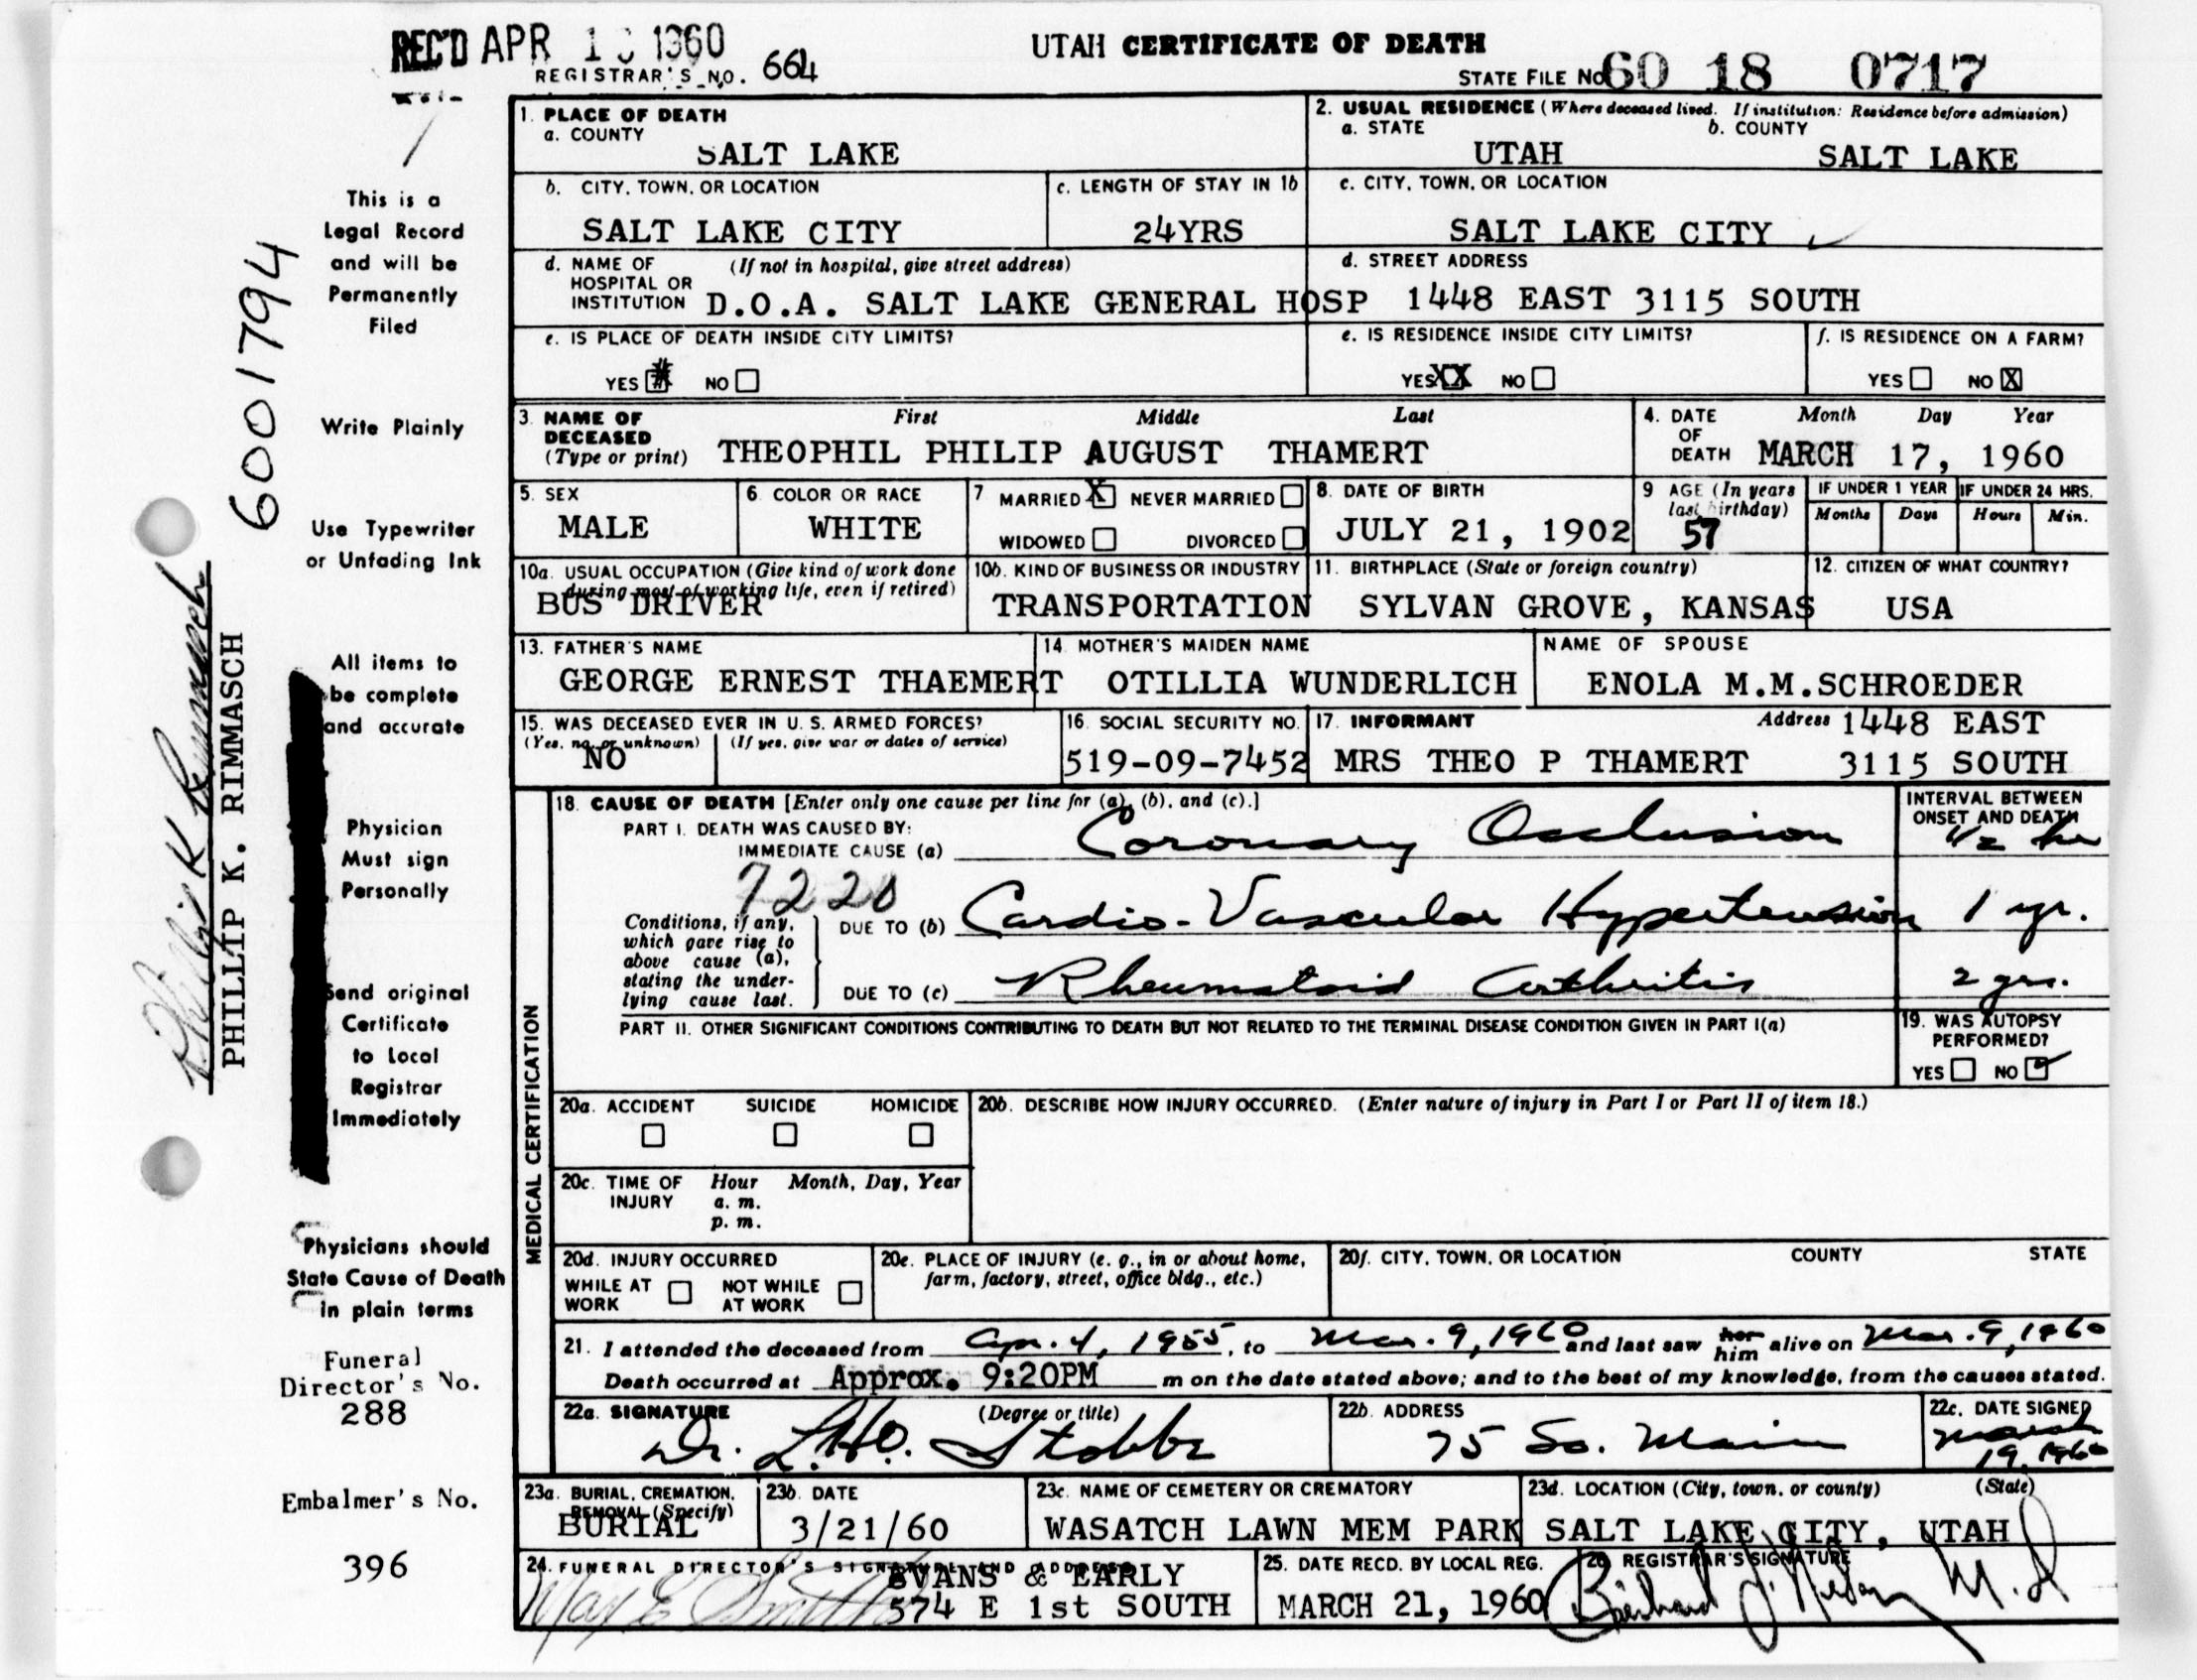 REC'D APR 1 1960
REGISTRAR'S NO. 664
UTAH CERTIFICATE OF DEATH
STATE FILE No 60 18 0717
1. PLACE OF DEATH
a. COUNTY
SALT LAKE
2. USUAL RESIDENCE (Where deceased lived. If institution: Residence before admission)
a. STATE b. COUNTY
UTAH SALT LAKE
b. CITY, TOWN, OR LOCATION
SALT LAKE CITY
c. LENGTH OF STAY IN 1b
24YRS
c. CITY, TOWN, OR LOCATION
SALT LAKE CITY
d. NAME OF (If not in hospital, give street address)
HOSPITAL OR
INSTITUTION D.O.A. SALT LAKE GENERAL HOSP
d. STREET ADDRESS
1448 EAST 3115 SOUTH
e. IS PLACE OF DEATH INSIDE CITY LIMITS?
YES NO
e. IS RESIDENCE INSIDE CITY LIMITS?
YES XX NO
f. IS RESIDENCE ON A FARM?
YES NO X
3. NAME OF First Middle Last
DECEASED
(Type or print) THEOPHIL PHILIP AUGUST THAMERT
4. DATE Month Day Year
OF
DEATH MARCH 17, 1960
5. SEX
MALE
6. COLOR OR RACE
WHITE
7 MARRIED X NEVER MARRIED
WIDOWED DIVORCED
8. DATE OF BIRTH
JULY 21, 1902
9 AGE (In years
last birthday)
57
IF UNDER 1 YEAR IF UNDER 24 HRS.
Months Days Hours Min.
10a. USUAL OCCUPATION (Give kind of work done
during most of working life, even if retired)
BUS DRIVER
10b. KIND OF BUSINESS OR INDUSTRY
TRANSPORTATION
11. BIRTHPLACE (State or foreign country)
SYLVAN GROVE, KANSAS
12. CITIZEN OF WHAT COUNTRY?
USA
13. FATHER'S NAME
GEORGE ERNEST THAEMERT
14. MOTHER'S MAIDEN NAME
OTILLIA WUNDERLICH
NAME OF SPOUSE
ENOLA M.M.SCHROEDER
15. WAS DECEASED EVER IN U. S. ARMED FORCES?
(Yes, no, or unknown) (If yes, give war or dates of service)
NO
16. SOCIAL SECURITY NO.
519-09-7452
17. INFORMANT Address 1448 EAST
MRS THEO P THAMERT 3115 SOUTH
MEDICAL CERTIFICATION
18. CAUSE OF DEATH [Enter only one cause per line for (a), (b), and (c).]
PART I. DEATH WAS CAUSED BY:
IMMEDIATE CAUSE (a) Coronary Occlusion
INTERVAL BETWEEN
ONSET AND DEATH
1/2 hr
7220
Conditions, if any,
which gave rise to
above cause (a),
stating the under-
lying cause last.
DUE TO (b) Cardio-Vascular Hypertension 1 yr.
DUE TO (c) Rheumatoid Arthritis 2 yrs.
PART II. OTHER SIGNIFICANT CONDITIONS CONTRIBUTING TO DEATH BUT NOT RELATED TO THE TERMINAL DISEASE CONDITION GIVEN IN PART I(a)
19. WAS AUTOPSY
PERFORMED?
YES NO
20a. ACCIDENT SUICIDE HOMICIDE
20b. DESCRIBE HOW INJURY OCCURRED. (Enter nature of injury in Part I or Part II of item 18.)
20c. TIME OF Hour Month, Day, Year
INJURY a. m.
p. m.
20d. INJURY OCCURRED
WHILE AT NOT WHILE
WORK AT WORK
20e. PLACE OF INJURY (e. g., in or about home,
farm, factory, street, office bldg., etc.)
20f. CITY, TOWN, OR LOCATION COUNTY STATE
21. I attended the deceased from Apr. 4, 1955, to Mar. 9, 1960 and last saw her him alive on Mar. 9, 1960
Death occurred at Approx. 9:20PM m on the date stated above; and to the best of my knowledge, from the causes stated.
22a. SIGNATURE (Degree or title)
Dr. L.H.O. Stobbe
22b. ADDRESS
75 So. Main
22c. DATE SIGNED
March
19, 1960
23a. BURIAL, CREMATION,
REMOVAL (Specify)
BURIAL
23b. DATE
3/21/60
23c. NAME OF CEMETERY OR CREMATORY
WASATCH LAWN MEM PARK
23d. LOCATION (City, town, or county) (State)
SALT LAKE CITY, UTAH
24. FUNERAL DIRECTOR'S SIGNATURE AND ADDRESS
EVANS & EARLY
574 E 1st SOUTH
25. DATE RECD. BY LOCAL REG.
MARCH 21, 1960
26. REGISTRAR'S SIGNATURE
M.D
This is a
Legal Record
and will be
Permanently
Filed
Write Plainly
Use Typewriter
or Unfading Ink
All items to
be complete
and accurate
Physician
Must sign
Personally
Send original
Certificate
to Local
Registrar
Immediately
Physicians should
State Cause of Death
in plain terms
Funeral
Director's No.
288
Embalmer's No.
396
6001794
Phillip K Rimmasch
PHILLIP K. RIMMASCH